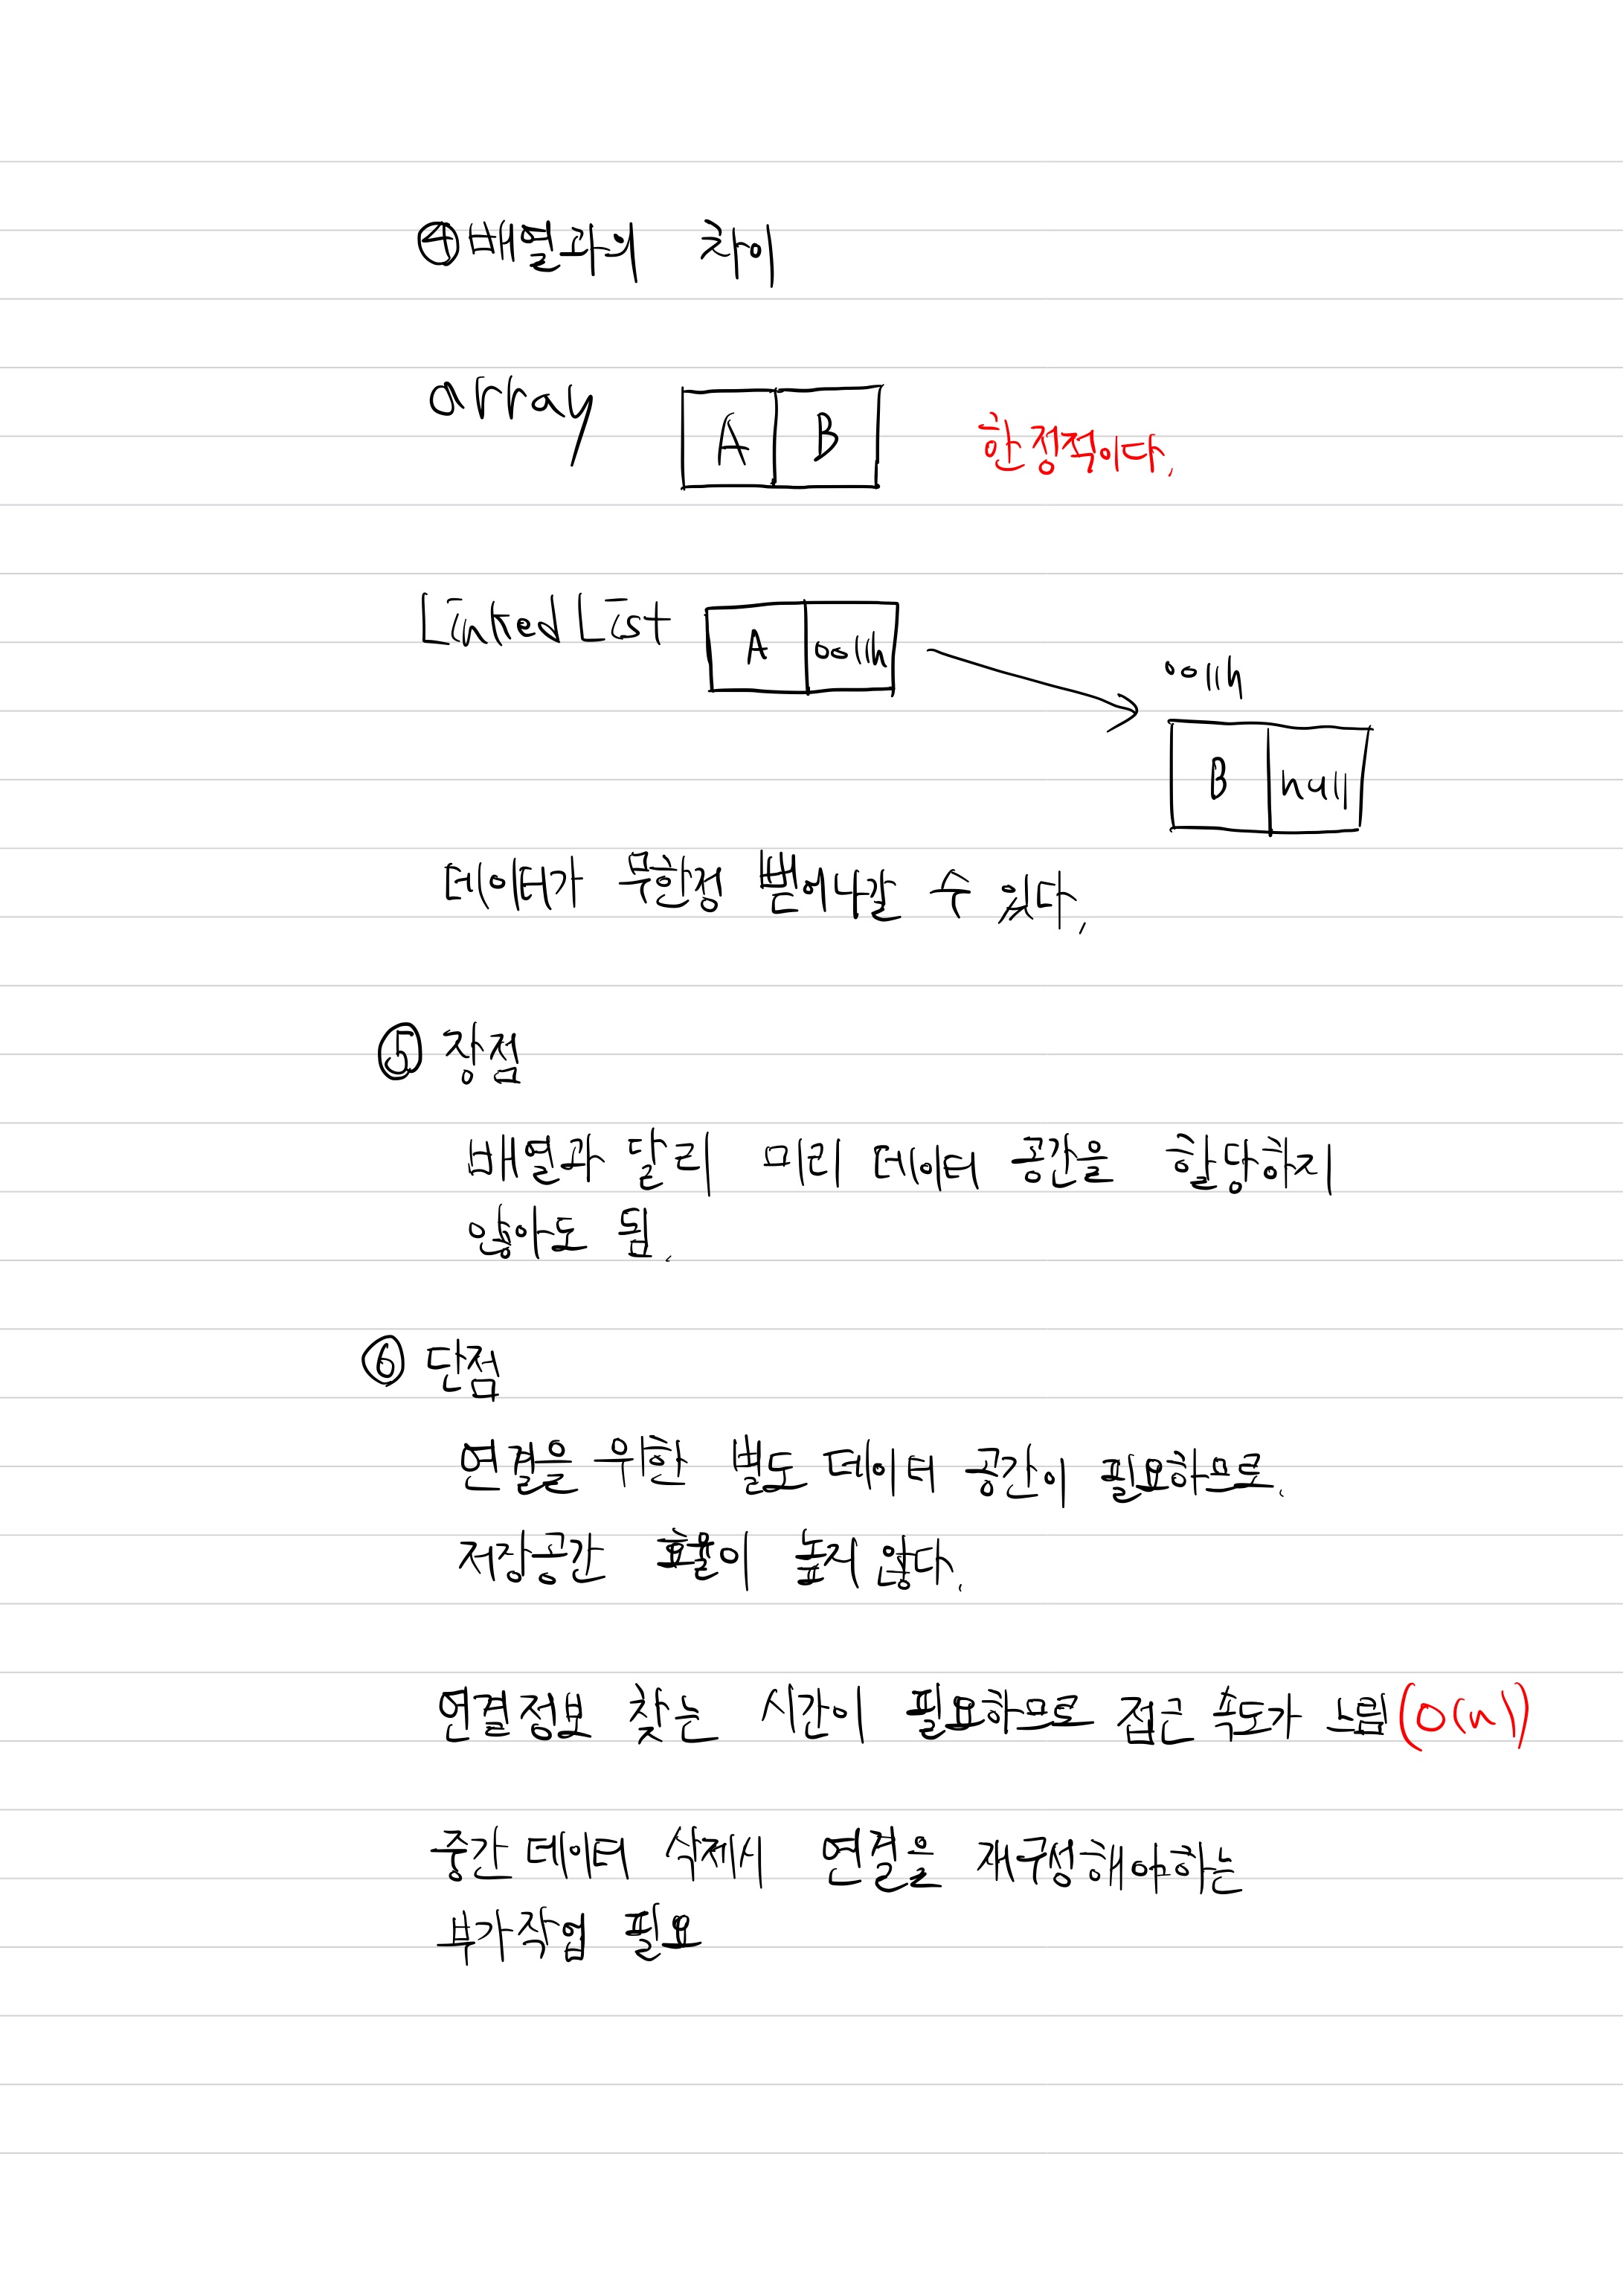 ④ 배열과의 차이
array A B 한정적이다.
Linked List A 0011h
0011h
B null
데이터가 무한정 뻗어나갈 수 있다.
⑤ 장점
배열과 달리 미리 데이터 공간을 할당하지
않아도 됨.
⑥ 단점
연결을 위한 별도 데이터 공간이 필요하므로.
저장공간 효율이 높지 않다.
연결정보 찾는 시간이 필요하므로 접근 속도가 느림(O(n))
중간 데이터 삭제시 연결을 재구성해야하는
부가작업 필요